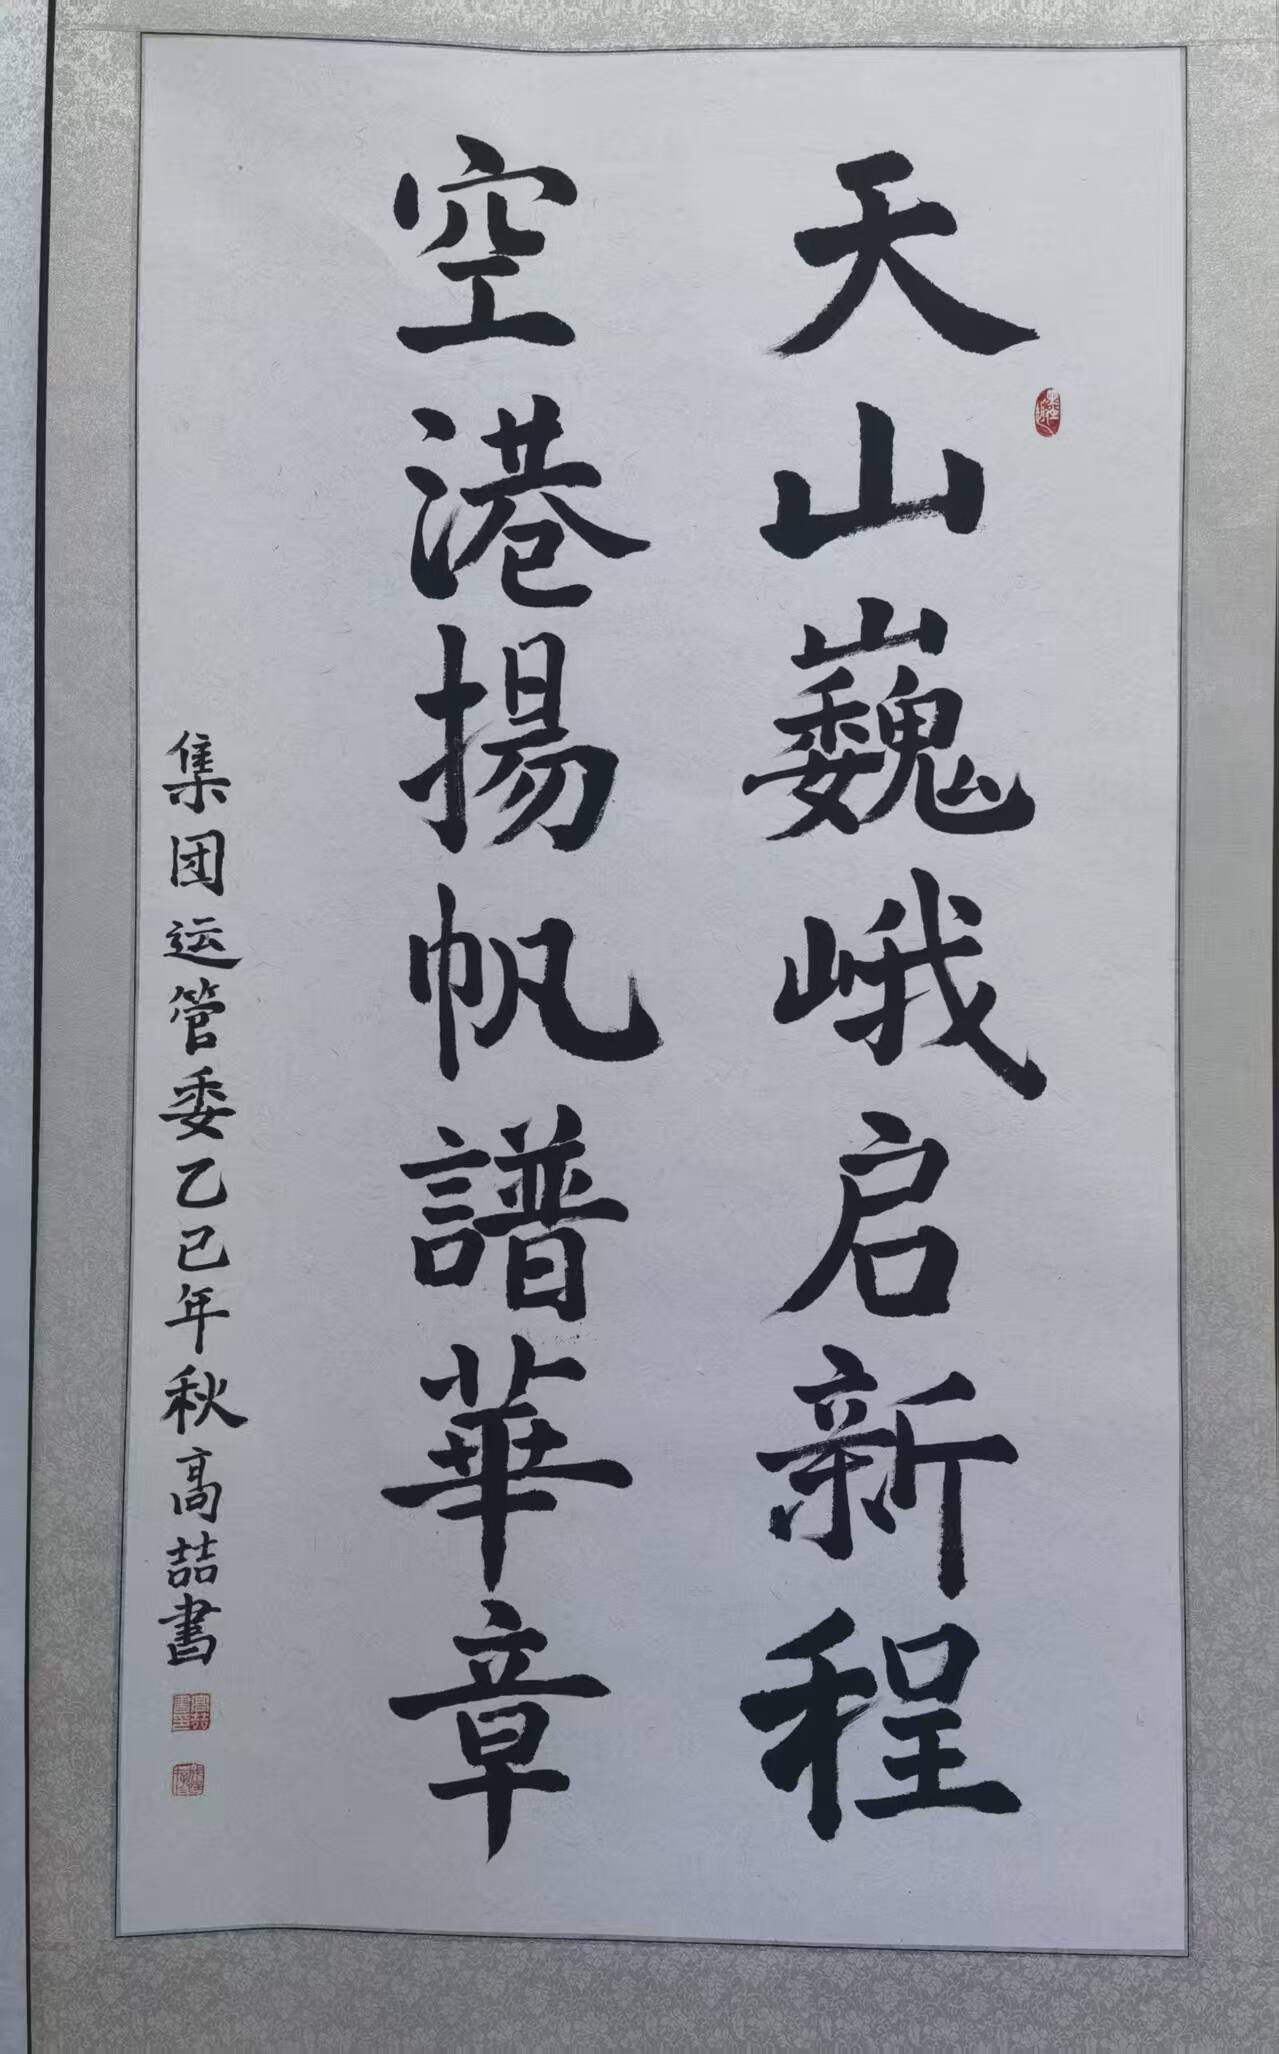 天山巍峨启新程
空港揚帆譜華章
集团运管委乙巳年秋高喆書